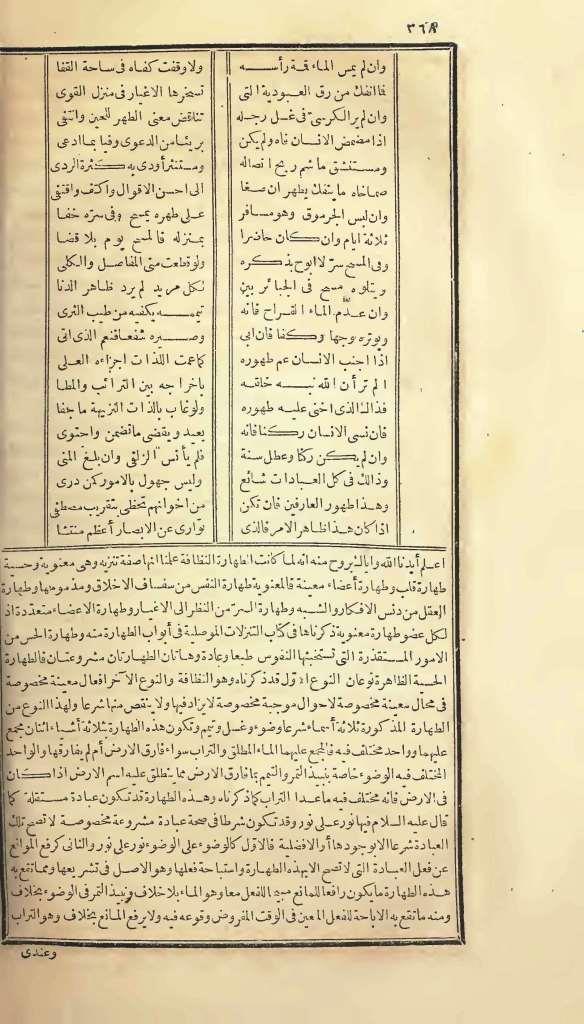 ٣٦٨
وان لم يمس الماء قمة رأسه ولا وقفت كفاه فى ساحة القفا
فما انفك من رق العبودية التى تسخرها الاغيار فى منزل القوى
وان لم ير الكرسى فى غسل رجله تناقض معنى الطهر للحين وانتفى
اذا مضمض الانسان فاه ولم يكن بريئا من الدعوى وفيا بما ادعى
ومستنشق ما شم ريح اتصاله ومستنثر أودى به كثرة الردى
صماخاه ما ينفك يطهر ان صغا الى احسن الاقوال واكتف واقتفى
وان لبس الجرموق وهو مسافر على طهره يمسح وفى سره خفا
ثلاثة ايام وان كان حاضرا بمنزله فالمسح يوم بلا قضا
وفى المسح سر لا ابوح بذكره ولو قطعت منى المفاصل والكلى
ويتلوه مسح فى الجبائر بين لكل مريد لم يرد ظاهر الدنا
وان عدم الماء القراح فانه تيممه يكفيه من طيب الثرى
ويوتره وجها وكفا فان ابى وصيره شفعا فنعم الذى اتى
اذا اجنب الانسان عم طهوره كما عمت اللذات اجزاءه العلى
الم تر أن الله نبه خلقه باخراجه بين الترائب والمطا
فذاك الذى اخنى عليه طهوره ولو غاب بالذات النزيهة ما جفا
فان نسى الانسان ركنا فانه يعيد ويقضى ما تضمن واحتوى
وان لم يكن ركنا وعطل سنة فلم يأنس الزلفى وان بلغ المنى
وذالك فى كل العبادات شائع وليس جهول بالامور كمن درى
وهذا طهور العارفين فان تكن من اخوانهم تحظى بتقريب مصطفى
اذا كان هذا ظاهر الامر فالذى توارى عن الابصار أعظم منتشا
اعلم أيدنا الله واياك بروح منه انه لما كانت الطهارة النظافة علمنا انها صفة تنزيه وهى معنوية وحسية
طهارة قلب وطهارة أعضاء معينة فالمعنوية طهارة النفس من سفساف الاخلاق ومذمومها وطهارة
العقل من دنس الافكار والشبه وطهارة السر من النظر الى الاغيار وطهارة الاعضاء متعددة اذ
لكل عضو طهارة معنوية ذكرناها فى كتاب التنزلات الموصلية فى أبواب الطهارة منه وطهارة الحس من
الامور المستقذرة التى تستخبثها النفوس طبعا وعادة وهاتان الطهارتان مشروعتان فالطهارة
الحسية الظاهرة نوعان النوع الاول قد ذكرناه وهو النظافة والنوع الآخر افعال معينة مخصوصة
فى محال معينة مخصوصة لاحوال موجبة مخصوصة لا يزاد فيها ولا ينقص منها شرعا ولهذا النوع من
الطهارة المذكورة ثلاثة أسماء شرعا وضوء وغسل وتيمم وتكون هذه الطهارة بثلاثة أشياء اثنان مجمع
عليهما وواحد مختلف فيه فالمجمع عليهما الماء المطلق والتراب سواء فارق الارض أم لم يفارقها والواحد
المختلف فيه الوضوء خاصة بنبيذ التمر والتيمم بما فارق الارض مما ينطلق عليه اسم الارض اذا كان
فى الارض فانه مختلف فيه ما عدا التراب كما ذكرناه وهذه الطهارة قد تكون عبادة مستقلة كما
قال عليه السلام فيها نور على نور وقد تكون شرطا فى صحة عبادة مشروعة مخصوصة لا تصح تلك
العبادة شرعا الا بوجودها أو الافضلية فالاول كالوضوء على الوضوء نور على نور والثانى كرفع الموانع
عن فعل العبادة التى لا تصح الا بهذه الطهارة واستباحة فعلها وهو الاصل فى تشريعها ومما تقع به
هذه الطهارة ما يكون رافعا للمانع مبيحا للفعل معا وهو الماء بلا خلاف ونبيذ التمر فى الوضوء بخلاف
ومنه ما تقع به الاباحة للفعل المعين فى الوقت المفروض وقوعه فيه ولا يرفع المانع بخلاف وهو التراب
وعندى